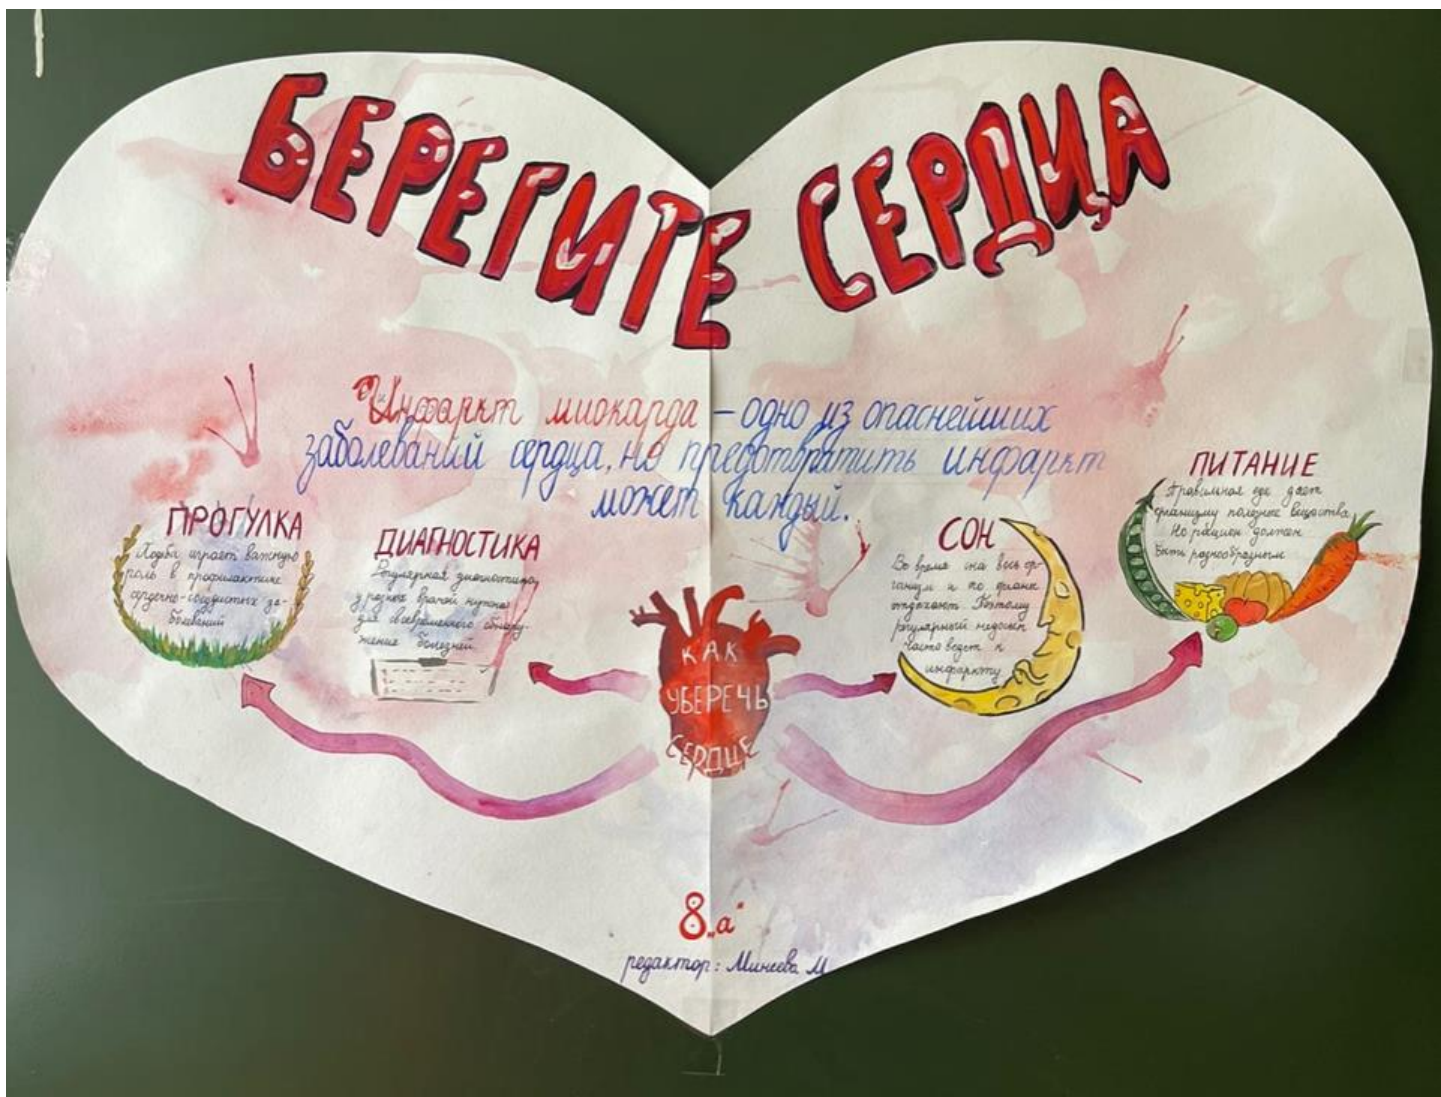 БЕРЕГИТЕ СЕРДЦА
Инфаркт миокарда – одно из опаснейших
заболеваний сердца, но предотвратить инфаркт
может каждый.
ПРОГУЛКА
Ходьба играет важную
роль в профилактике
сердечно-сосудистых за-
болеваний
ДИАГНОСТИКА
Регулярная диагностика
у разных врачей нужна
для своевременного обнару-
жения болезней.
КАК
УБЕРЕЧЬ
СЕРДЦЕ
СОН
Во время сна весь ор-
ганизм и его органы
отдыхают. Поэтому
регулярный недосып
часто ведет к
инфаркту
ПИТАНИЕ
Правильная еда дает
организму полезные вещества.
Но рацион должен
быть разнообразным
8„а“
редактор: Минеева М